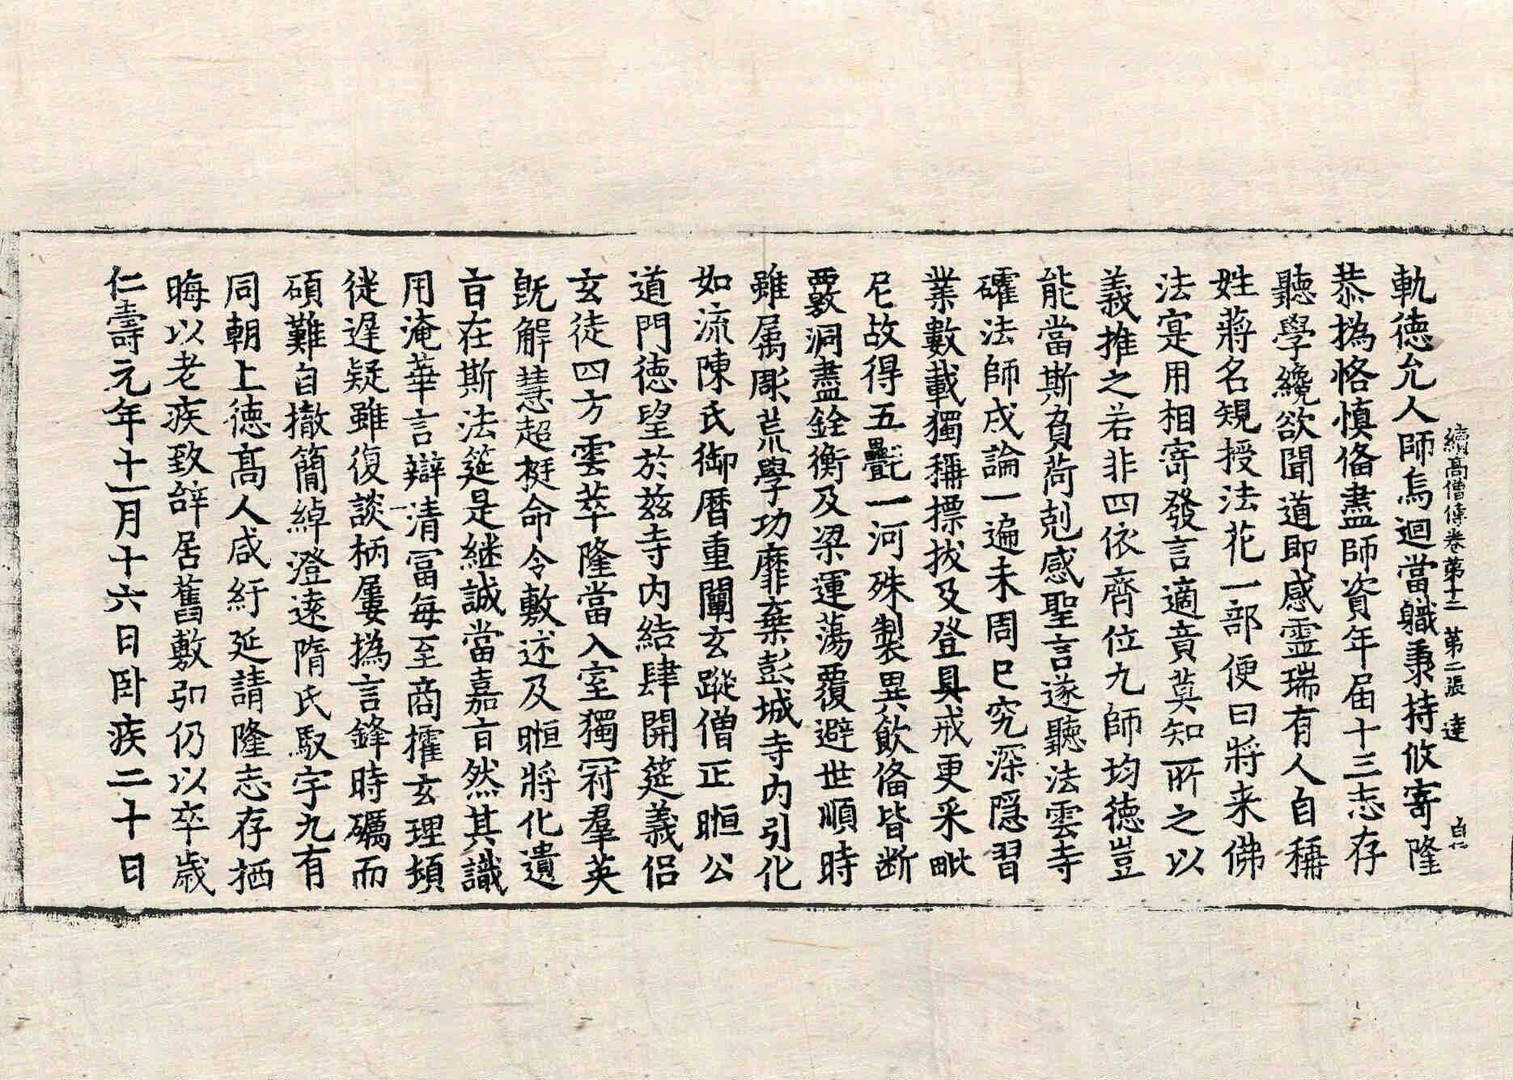 軌徳允人師焉迴當職秉持攸寄隆
續高僧傳卷第十二 第二張 達
恭撝恪慎俻盡師資年届十三志存
聽學纔欲聞道即感霊瑞有人自稱
姓蔣名規授法花一部便曰將来佛
法寔用相寄發言適竟莫知所之以
義推之若非四依齊位九師均徳豈
能當斯負荷剋感聖言遂聽法雲寺
礭法師成論一遍未周已究深隠習
業數載獨稱摽拔及登具戒更采毗
尼故得五氎一河殊製異飲俻皆断
覈洞盡銓衡及梁運蕩覆避世順時
雖属彫荒學功靡棄彭城寺内引化
如流陳氏御暦重闡玄蹤僧正晅公
道門徳望於兹寺内結肆開筵義侣
玄徒四方雲萃隆當入室獨冠羣英
既解慧超挺命令敷述及晅將化遺
旨在斯法筵是継誠當嘉旨然其識
用淹華言辯清富每至商攉玄理頻
従遅疑雖復談柄屢撝言鋒時礪而
碩難自撤簡綽澄遠隋氏馭宇九有
同朝上徳髙人咸紆延請隆志存栖
晦以老疾致辞居舊敷弘仍以卒歳
仁壽元年十一月十六日卧疾二十日